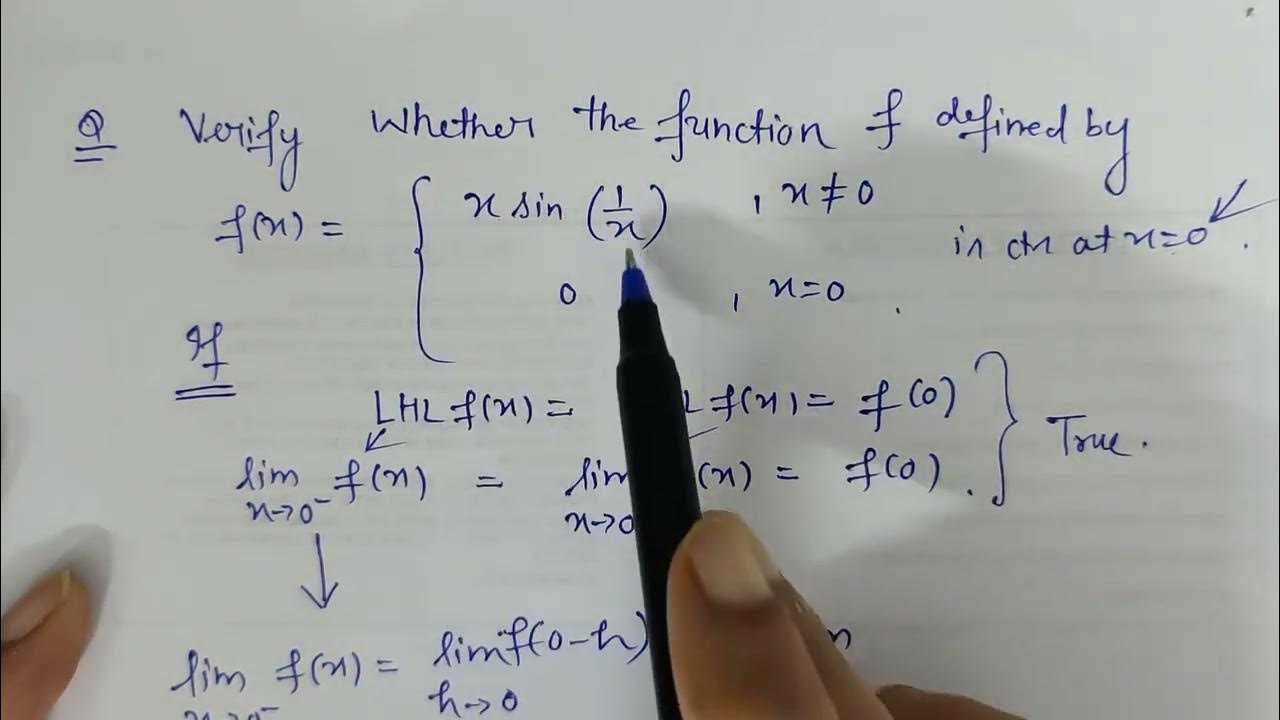 Q Verify Whether the function f defined by
f(x) = { x sin (1/x) , x ≠ 0
in cts at x=0 .
0 , x=0 .
If
LHL f(x) = L f(x) = f(0) } True.
lim x→0⁻ f(x) = lim x→0 (x) = f(0) .
lim x→0⁻ f(x) = lim h→0 f(0-h)